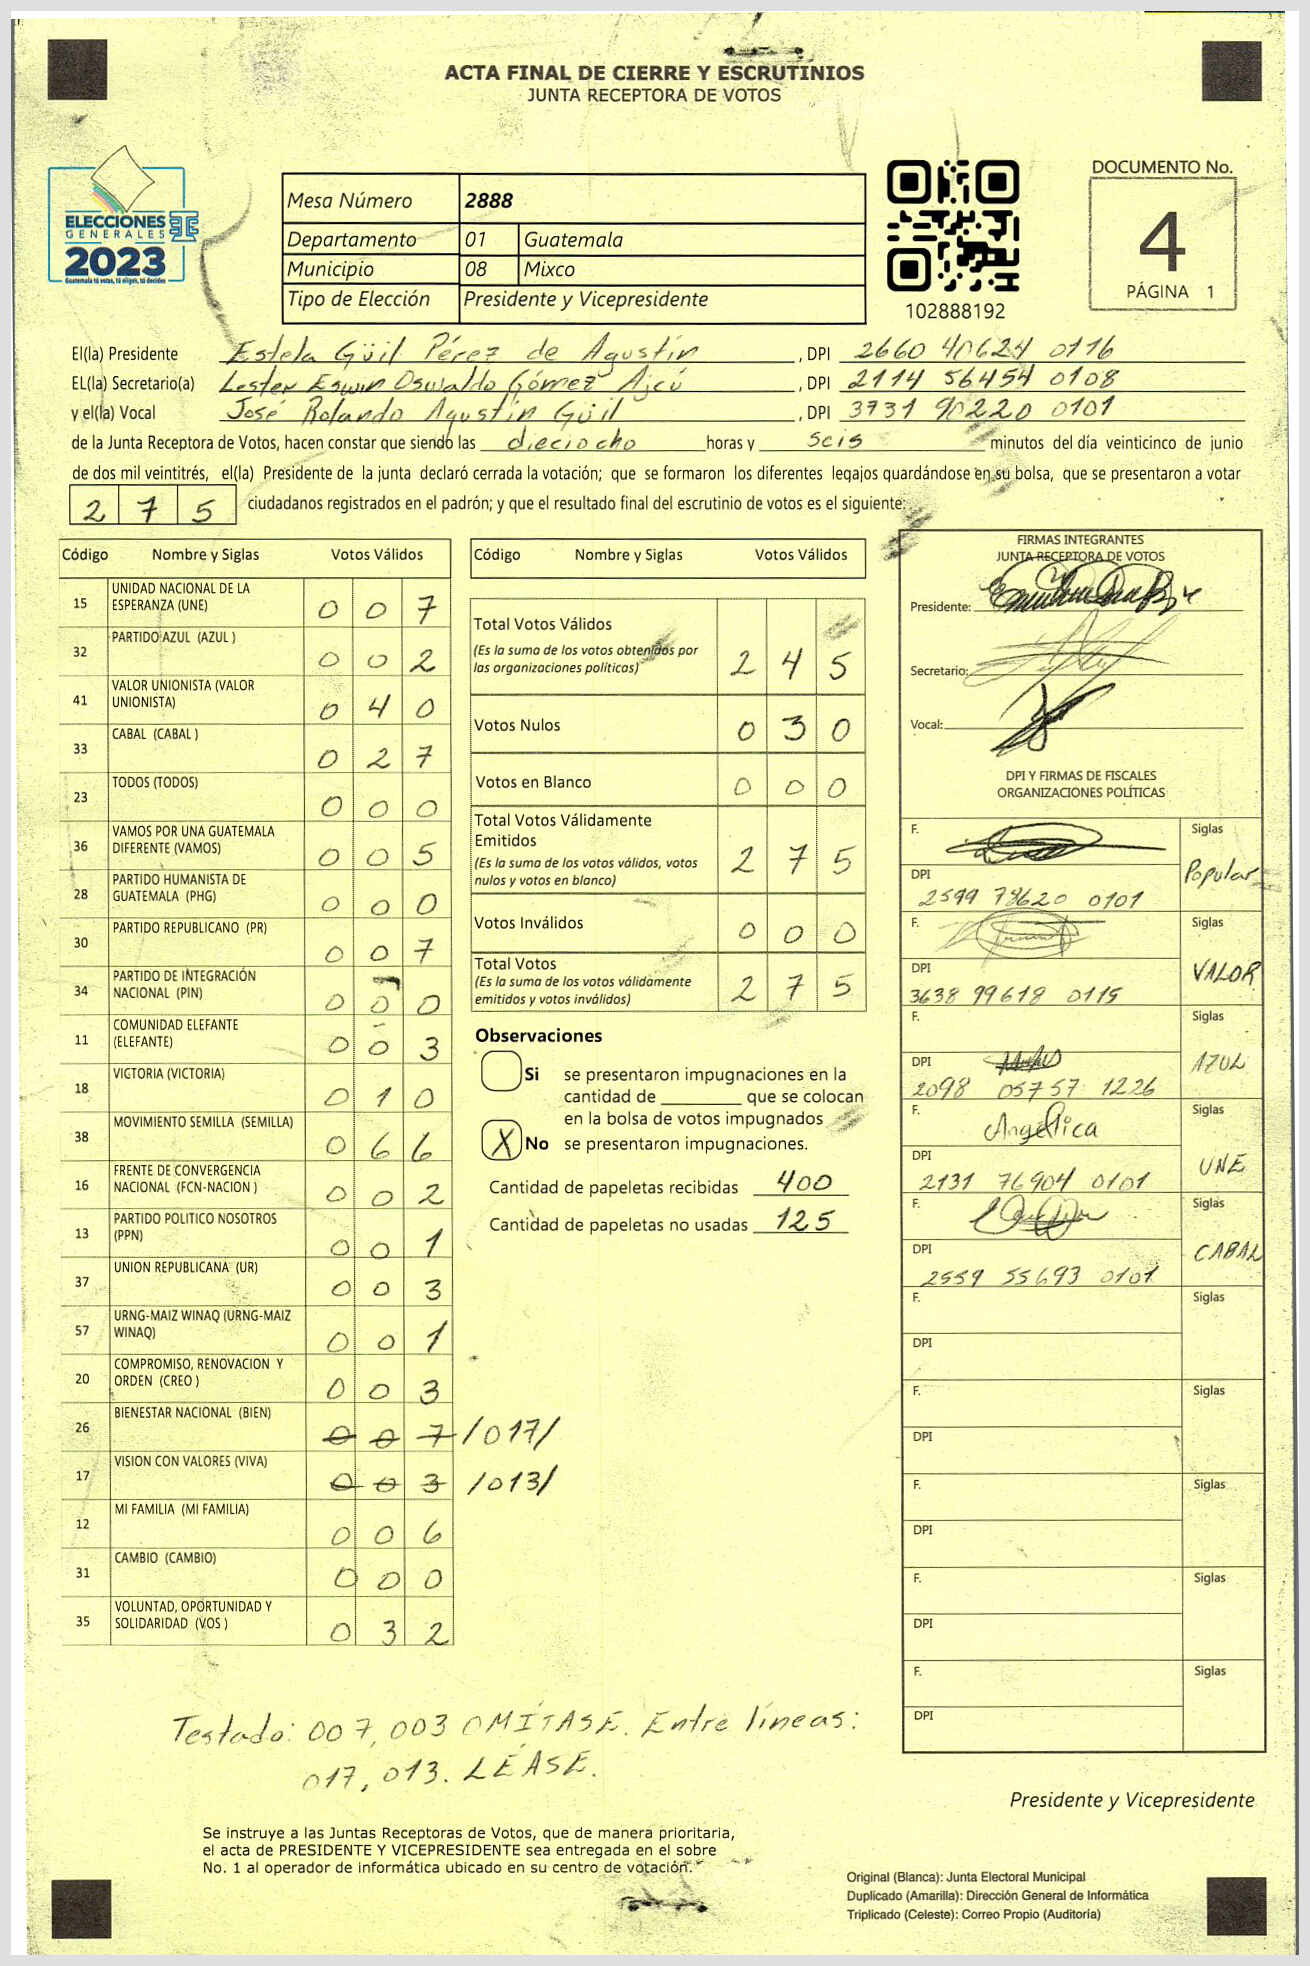 ACTA FINAL DE CIERRE Y ESCRUTINIOS
JUNTA RECEPTORA DE VOTOS
ELECCIONES
GENERALES
2023
Guatemala tú votas, tú eliges, tú decides
Mesa Número 2888
Departamento 01 Guatemala
Municipio 08 Mixco
Tipo de Elección Presidente y Vicepresidente
102888192
DOCUMENTO No.
4
PÁGINA 1
El(la) Presidente Estela Güil Pérez de Agustín, DPI 2660 40624 0116
EL(la) Secretario(a) Lester Eswin Oswaldo Gómez Ajcú, DPI 2114 56454 0108
y el(la) Vocal José Rolando Agustín Güil, DPI 3731 90220 0101
de la Junta Receptora de Votos, hacen constar que siendo las dieciocho horas y seis minutos del día veinticinco de junio
de dos mil veintitrés, el(la) Presidente de la junta declaró cerrada la votación; que se formaron los diferentes legajos guardándose en su bolsa, que se presentaron a votar
2 7 5 ciudadanos registrados en el padrón; y que el resultado final del escrutinio de votos es el siguiente:
Código Nombre y Siglas Votos Válidos
15 UNIDAD NACIONAL DE LA ESPERANZA (UNE) 0 0 7
32 PARTIDO AZUL (AZUL ) 0 0 2
41 VALOR UNIONISTA (VALOR UNIONISTA) 0 4 0
33 CABAL (CABAL ) 0 2 7
23 TODOS (TODOS) 0 0 0
36 VAMOS POR UNA GUATEMALA DIFERENTE (VAMOS) 0 0 5
28 PARTIDO HUMANISTA DE GUATEMALA (PHG) 0 0 0
30 PARTIDO REPUBLICANO (PR) 0 0 7
34 PARTIDO DE INTEGRACIÓN NACIONAL (PIN) 0 0 0
11 COMUNIDAD ELEFANTE (ELEFANTE) 0 0 3
18 VICTORIA (VICTORIA) 0 1 0
38 MOVIMIENTO SEMILLA (SEMILLA) 0 6 6
16 FRENTE DE CONVERGENCIA NACIONAL (FCN-NACION ) 0 0 2
13 PARTIDO POLITICO NOSOTROS (PPN) 0 0 1
37 UNION REPUBLICANA (UR) 0 0 3
57 URNG-MAIZ WINAQ (URNG-MAIZ WINAQ) 0 0 1
20 COMPROMISO, RENOVACION Y ORDEN (CREO ) 0 0 3
26 BIENESTAR NACIONAL (BIEN) 0 0 7 /017/
17 VISION CON VALORES (VIVA) 0 0 3 /013/
12 MI FAMILIA (MI FAMILIA) 0 0 6
31 CAMBIO (CAMBIO) 0 0 0
35 VOLUNTAD, OPORTUNIDAD Y SOLIDARIDAD (VOS ) 0 3 2
Código Nombre y Siglas Votos Válidos
Total Votos Válidos
(Es la suma de los votos obtenidos por
las organizaciones políticas) 2 4 5
Votos Nulos 0 3 0
Votos en Blanco 0 0 0
Total Votos Válidamente
Emitidos
(Es la suma de los votos válidos, votos
nulos y votos en blanco) 2 7 5
Votos Inválidos 0 0 0
Total Votos
(Es la suma de los votos válidamente
emitidos y votos inválidos) 2 7 5
Observaciones
Si se presentaron impugnaciones en la
cantidad de ________ que se colocan
en la bolsa de votos impugnados
X No se presentaron impugnaciones.
Cantidad de papeletas recibidas 400
Cantidad de papeletas no usadas 125
FIRMAS INTEGRANTES
JUNTA RECEPTORA DE VOTOS
Presidente:
Secretario:
Vocal:
DPI Y FIRMAS DE FISCALES
ORGANIZACIONES POLÍTICAS
F. Siglas
DPI Popular
2599 78620 0101
F. Siglas
DPI VALOR
3638 99618 0115
F. Siglas
DPI AZUL
2098 05757 1226
F. Angélica Siglas
DPI UNE
2131 76904 0101
F. Siglas
DPI CABAL
2559 55693 0101
F. Siglas
DPI
F. Siglas
DPI
F. Siglas
DPI
F. Siglas
DPI
F. Siglas
DPI
Testado: 007, 003 OMÍTASE. Entre líneas:
017, 013. LÉASE.
Presidente y Vicepresidente
Se instruye a las Juntas Receptoras de Votos, que de manera prioritaria,
el acta de PRESIDENTE Y VICEPRESIDENTE sea entregada en el sobre
No. 1 al operador de informática ubicado en su centro de votación.
Original (Blanca): Junta Electoral Municipal
Duplicado (Amarilla): Dirección General de Informática
Triplicado (Celeste): Correo Propio (Auditoría)